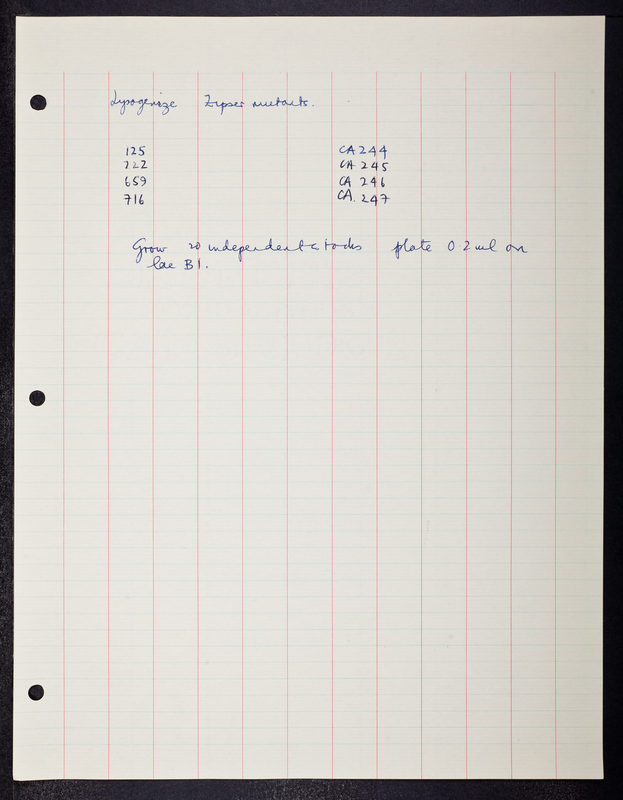 Lysogenize Zipser mutants.
125 CA 244
722 CA 245
659 CA 246
716 CA. 247
Grow 20 independent stocks plate 0.2 ml on
lac B1.